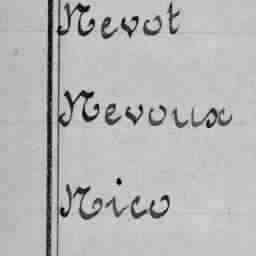 Nevot
Nevoux
Nico